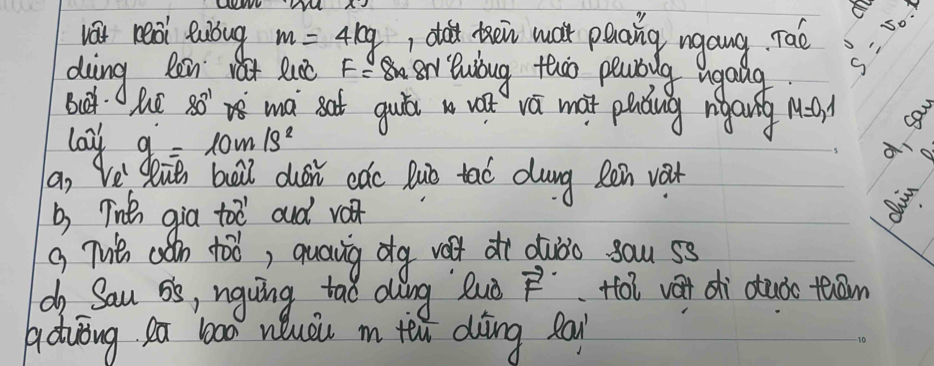 vật khối lượng m = 4kg, đặt trên mặt phẳng ngang. Tác
dụng lên vật lực F = 8N hướng theo phương ngang.
Biết hệ số ma sát giữa vật và mặt phẳng ngang μ=0,1
lấy g = 10m/s²
a, Vẽ hình biểu diễn các lực tác dụng lên vật
b, Tính gia tốc của vật
c, Tính vận tốc, quãng đg vật đi được sau 5s
d, Sau 5s, ngừng tác dụng lực F⃗. Hỏi vật đi được thêm
q đường là bao nhiêu m thì dừng lại
S = v₀.t
10